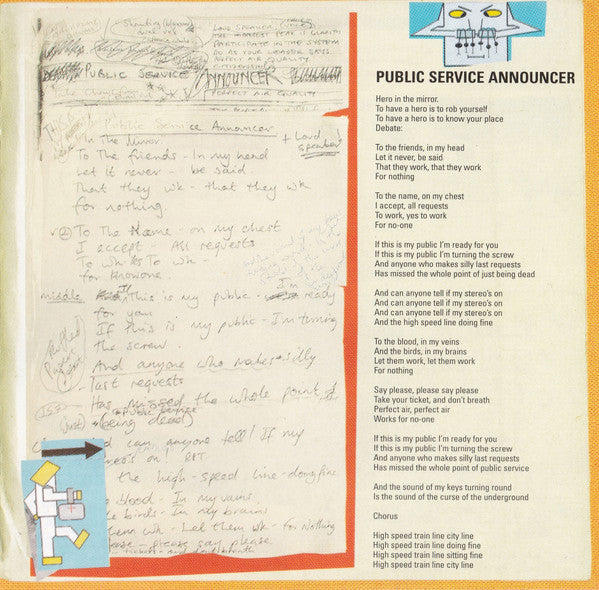 Shouting
LOUD SPEAKER (VOICE)
THE
PARTICIPATE IN THE SYSTEM
DO AS YOUR LEADER SAYS
PERFECT AIR QUALITY
PUBLIC SERVICE ANNOUNCER
PERFECT AIR QUALITY
Public Service Announcer
In The Mirror
+ Loud speaker!
To The friends - In my head
Let It never - be said
That they wk - that they wk
for nothing
② To The Name - on my chest
I accept - All requests
To wk - Yes To wk -
for knowone
middle If This is my public - I'm ready
for you
If this is my public - I'm turning
the screw.
And anyone who makes silly
Last requests
Has missed the whole point of
(Just) (being dead)
can anyone tell If my
on' RPT
the high-speed line-doing fine
blood - In my vains
birds - In my brains
them wk - Let them wk - for Nothing
please - please say please
PUBLIC SERVICE ANNOUNCER
Hero in the mirror.
To have a hero is to rob yourself
To have a hero is to know your place
Debate:
To the friends, in my head
Let it never, be said
That they work, that they work
For nothing
To the name, on my chest
I accept, all requests
To work, yes to work
For no-one
If this is my public I'm ready for you
If this is my public I'm turning the screw
And anyone who makes silly last requests
Has missed the whole point of just being dead
And can anyone tell if my stereo's on
And can anyone tell if my stereo's on
And can anyone tell if my stereo's on
And the high speed line doing fine
To the blood, in my veins
And the birds, in my brains
Let them work, let them work
For nothing
Say please, please say please
Take your ticket, and don't breath
Perfect air, perfect air
Works for no-one
If this is my public I'm ready for you
If this is my public I'm turning the screw
And anyone who makes silly last requests
Has missed the whole point of public service
And the sound of my keys turning round
Is the sound of the curse of the underground
Chorus
High speed train line city line
High speed train line doing fine
High speed train line sitting fine
High speed train line city line